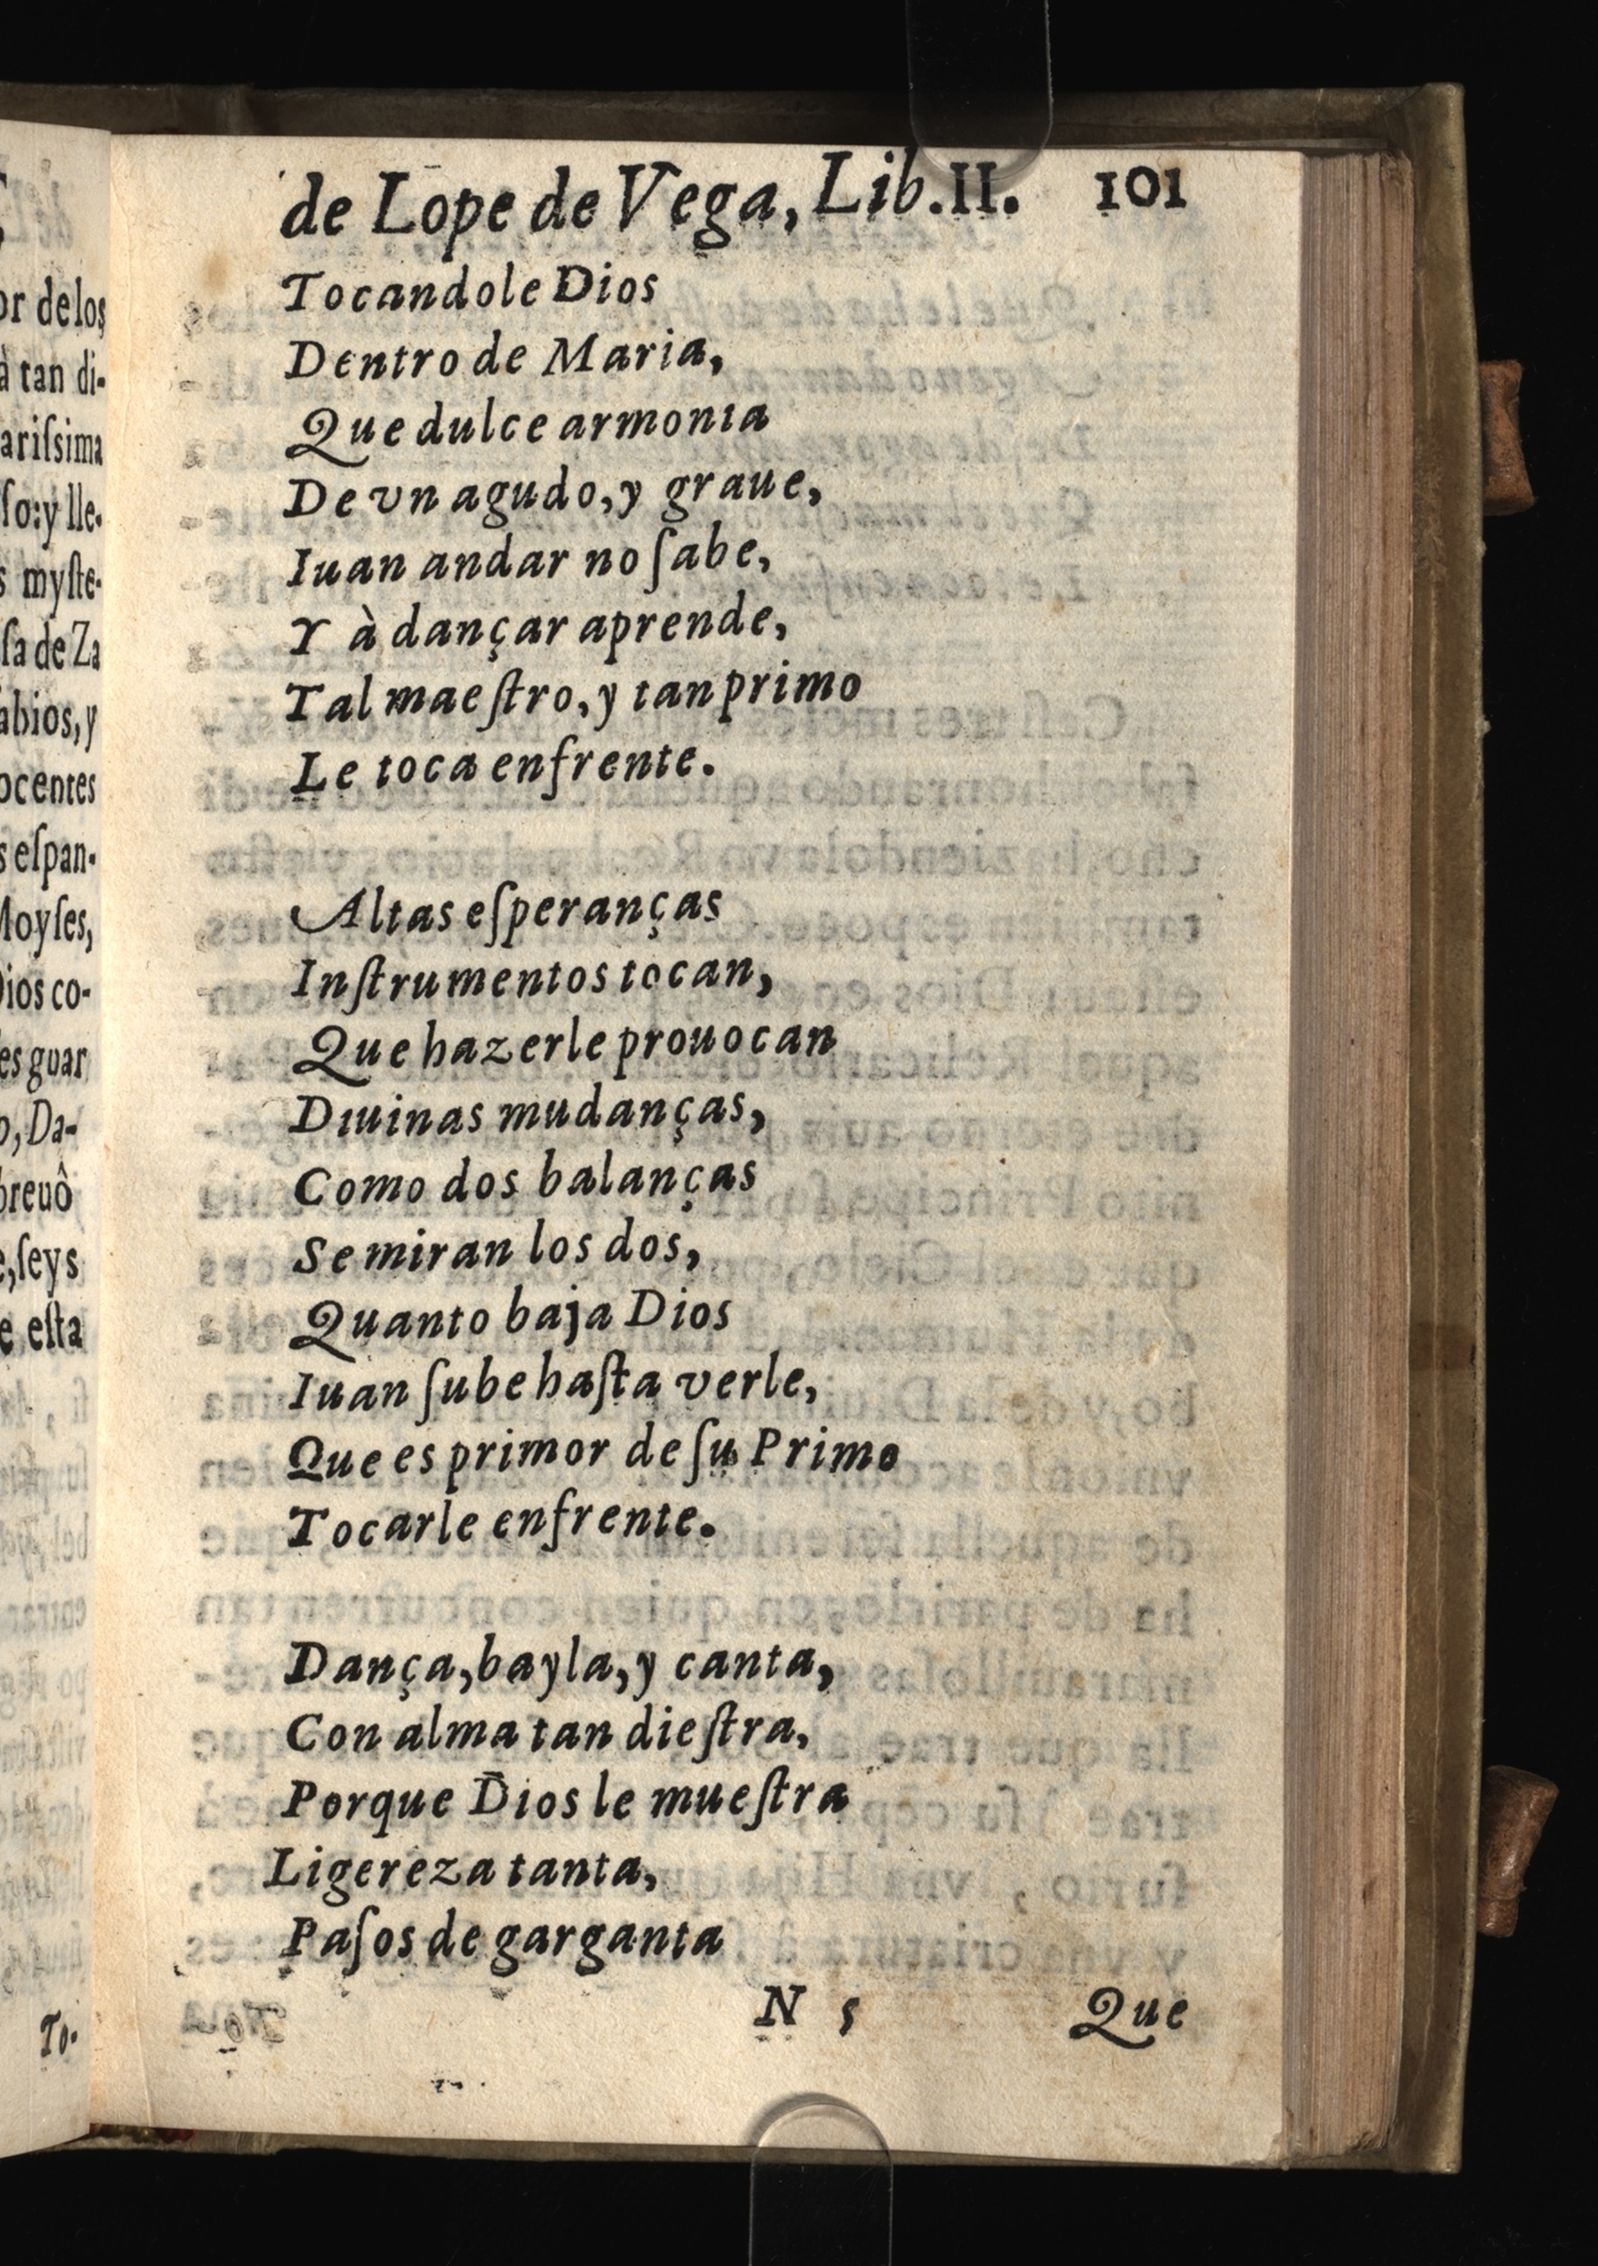 de Lope de Vega, Lib. II. 101
Tocandole Dios
Dentro de Maria,
Que dulce armonia
De vn agudo, y graue,
Iuan andar no ſabe,
Y à dançar aprende,
Tal maeſtro, y tan primo
Le toca enfrente.
Altas eſperanças
Inſtrumentos tocan,
Que hazerle prouocan
Diuinas mudanças,
Como dos balanças
Se miran los dos,
Quanto baja Dios
Iuan ſube haſta verle,
Que es primor de ſu Primo
Tocarle enfrente.
Dança, bayla, y canta,
Con alma tan dieſtra,
Porque Dios le mueſtra
Ligereza tanta,
Paſos de garganta
N 5 Que